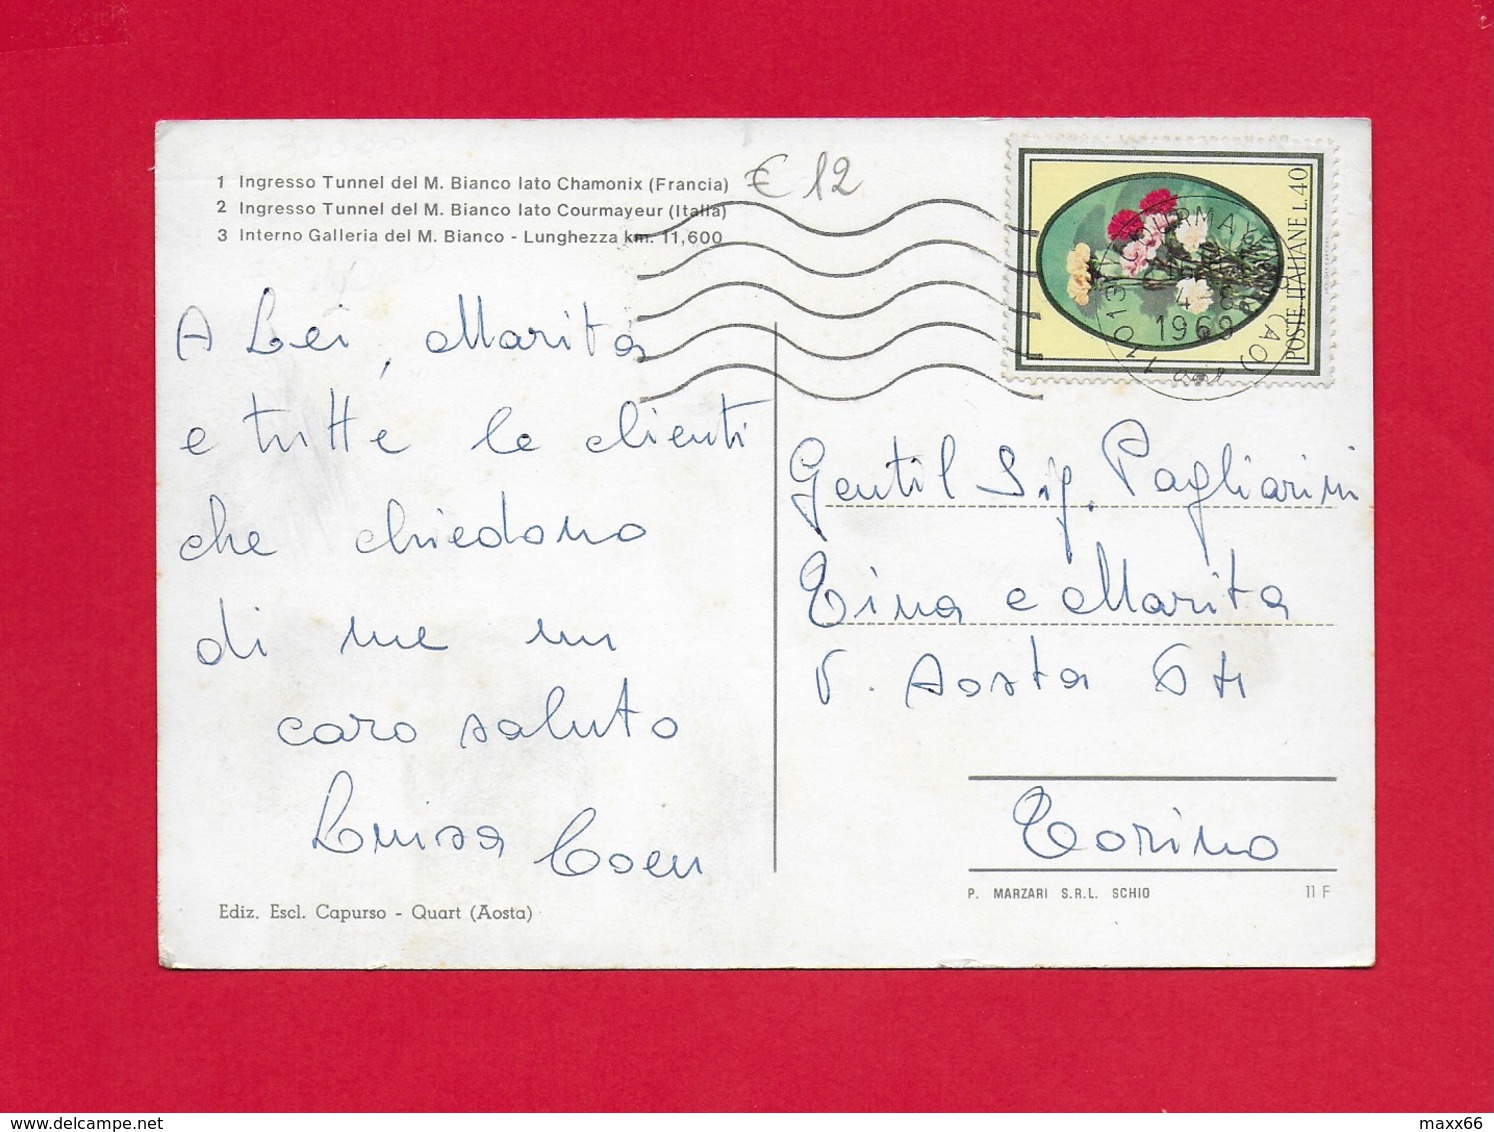 1 Ingresso Tunnel del M. Bianco lato Chamonix (Francia)
2 Ingresso Tunnel del M. Bianco lato Courmayeur (Italia)
3 Interno Galleria del M. Bianco - Lunghezza km. 11,600
€ 12
A Lei, Marita
e tutte le clienti
che chiedono
di me un
caro saluto
Luisa Coen
Ediz. Escl. Capurso - Quart (Aosta)
POSTE ITALIANE L.40
11013 COURMAYEUR (AO)
1968
Gentil Sig. Pagliarini
Tina e Marita
V. Aosta
Torino
P. MARZARI S.R.L. SCHIO 11 F
www.delcampe.net
maxx66